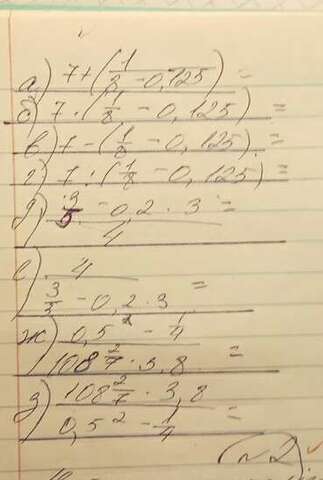 а) 7 + (1/8 - 0,125) =
б) 7 · (1/8 - 0,125) =
в) 7 - (1/8 - 0,125) =
г) 7 : (1/8 - 0,125) =
д) 3/5 - 0,2 · 3 =
4
е) 4
3/5 - 0,2 · 3 =
ж) 0,5² - 1/4
108 2/7 · 3,8 =
з) 108 2/7 · 3,8
0,5² - 1/4 =
(№2)